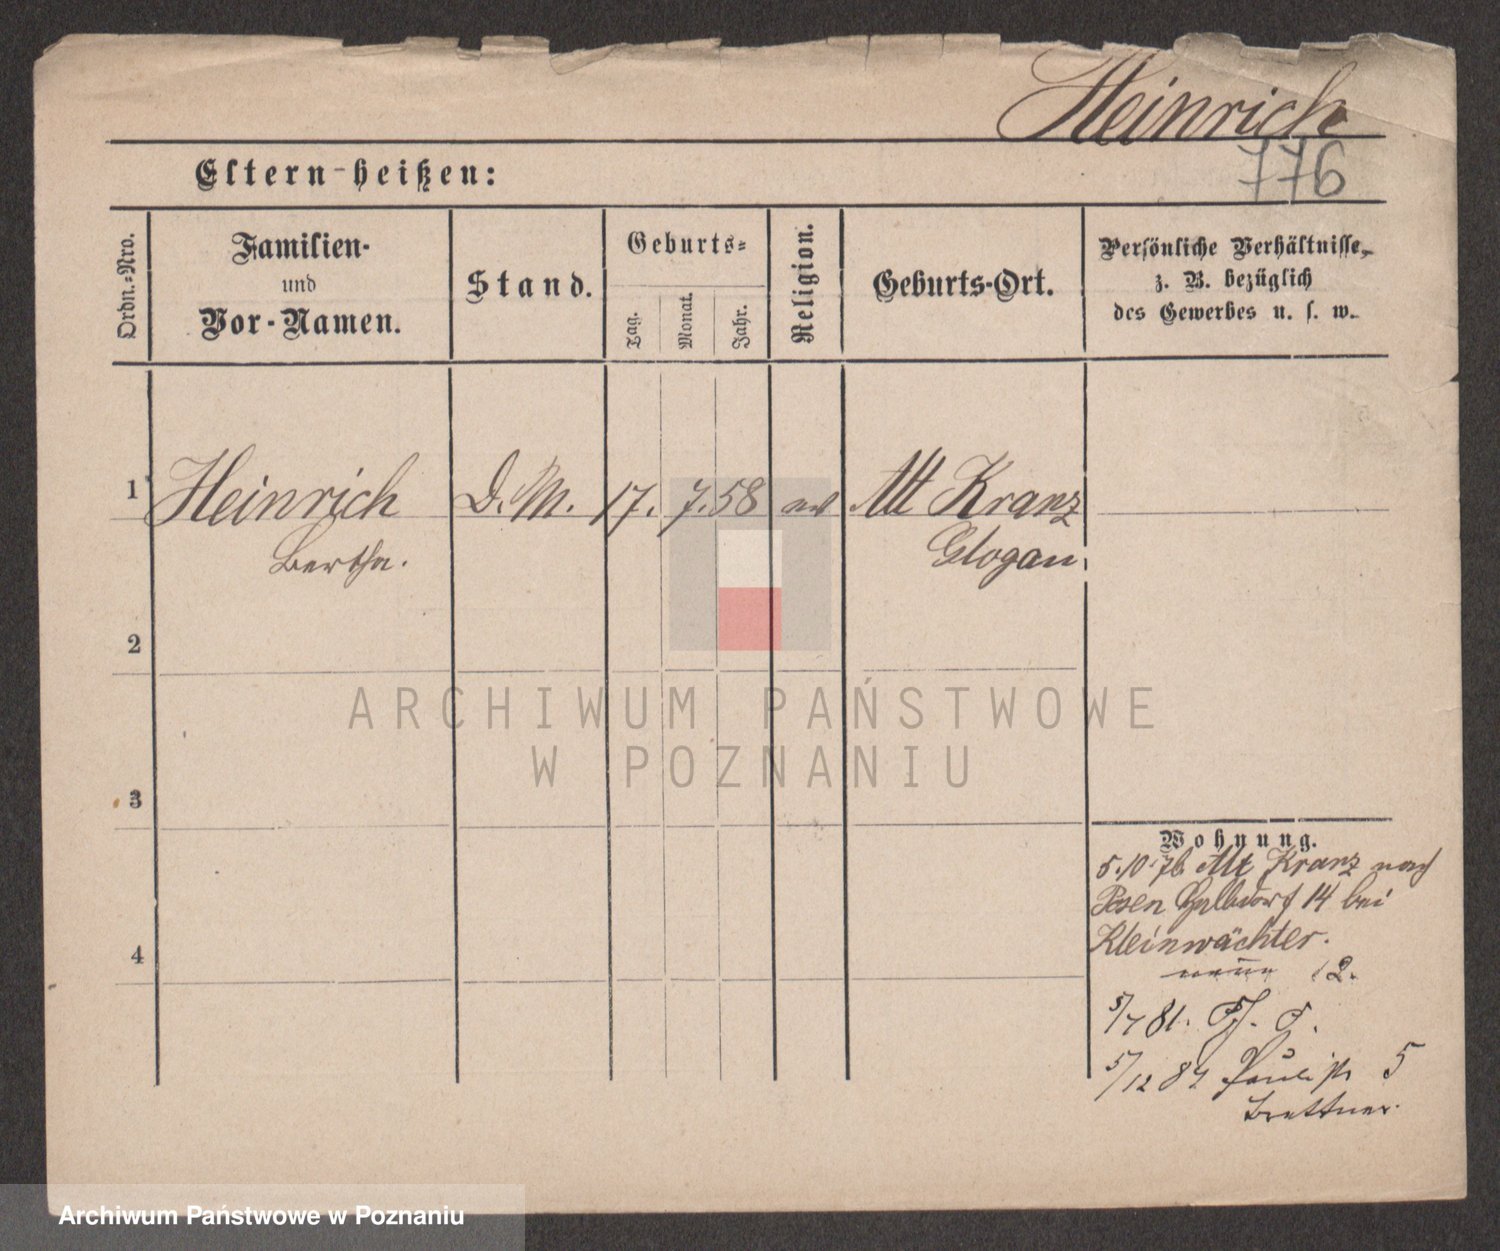 Heinrich
776
Eltern heißen:
Ordn.-Nro.
Familien-
und
Vor-Namen.
Stand.
Geburts-
Tag.
Monat.
Jahr.
Religion.
Geburts-Ort.
Persönliche Verhältnisse,
z. B. bezüglich
des Gewerbes u. s. w.
1 Heinrich D. M. 17. 7. 58 Alt Kranz
Bertha. Glogau.
2
3
4
ARCHIWUM PAŃSTWOWE
W POZNANIU
Wohnung.
5.10.76 Alt Kranz nach
Posen Halbdorf 14 bei
Kleinwächter.
12.
5/7 81.
5/12 84 Paulistr 5
Brettner.
Archiwum Państwowe w Poznaniu